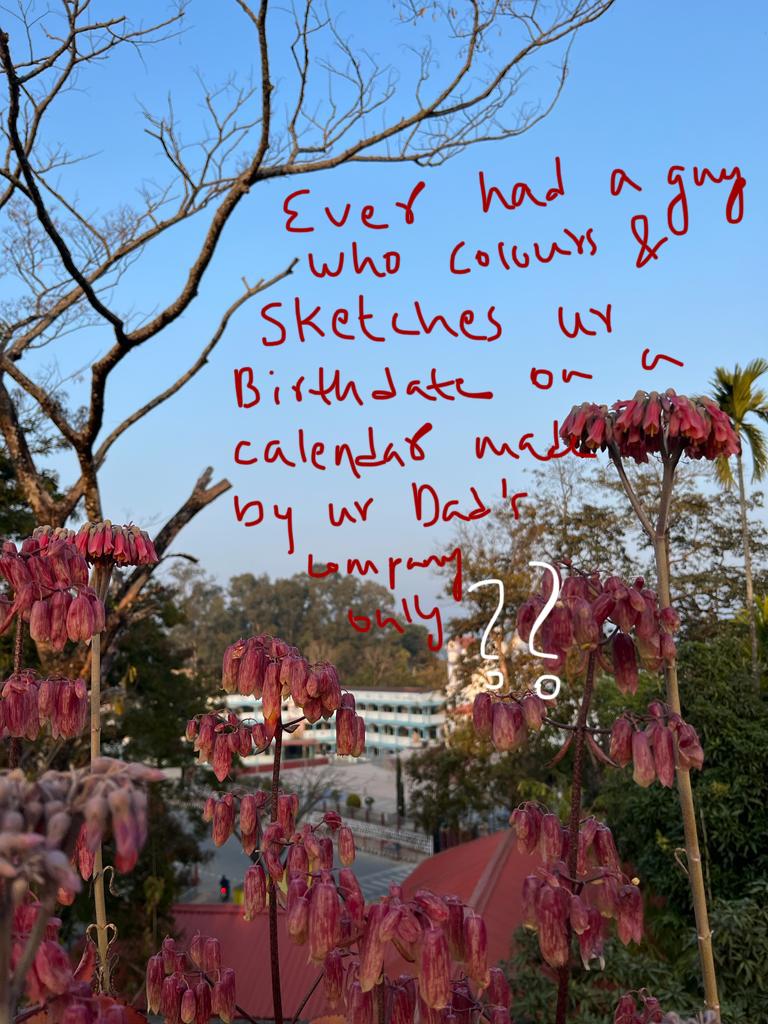 Ever had a guy
who colours &
Sketches ur
Birthdate on a
calendar made
by ur Dad's
company
only ??